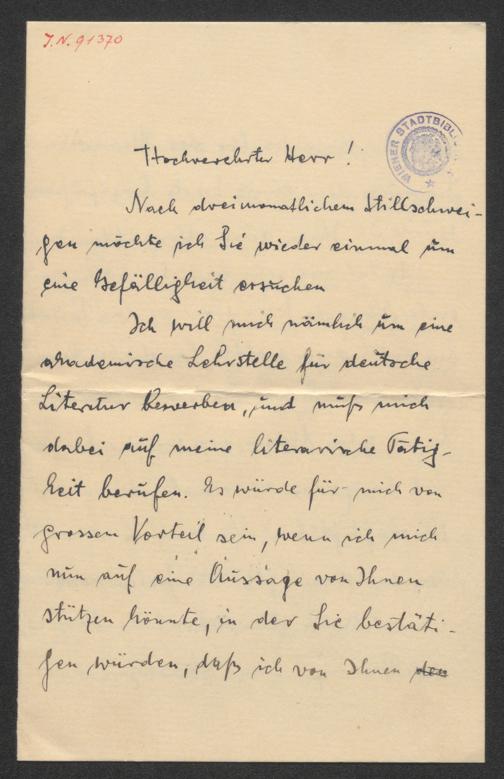 J.N. 91370
WIENER STADTBIBL
Hochverehrter Herr!
Nach dreimonatlichem Stillschwei-
gen möchte ich Sie wieder einmal um
eine Gefälligkeit ersuchen
Ich will mich nämlich um eine
akademische Lehrstelle für deutsche
Literatur bewerben, und muß mich
dabei auf meine literarische Tätig-
keit berufen. Es würde für mich von
grossem Vorteil sein, wenn ich mich
nun auf eine Aussage von Ihnen
stützen könnte, in der Sie bestäti-
gen würden, daß ich von Ihnen den